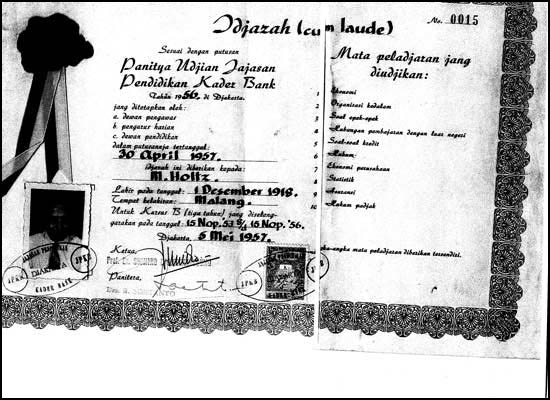 Idjazah (cum laude)
No. 0015
Sesuai dengan putusan
Panitya Udjian Jajasan
Pendidikan Kader Bank
Tahun 1956. di Djakarta.
jang ditetapkan oleh:
a. dewan pengawas
b. pengurus harian
c. dewan pendidikan
dalam putusannja tertanggal:
30 April 1957.
idjazah ini diberikan kepada:
M. Holtz.
Lahir pada tanggal: 1 Desember 1918.
Tempat kelahiran: Malang.
Untuk Kursus B (tiga tahun) jang diseleng-
garakan pada tanggal: 15 Nop. 53 s/d 15 Nop. '56.
Djakarta, 5 Mei 1957.
Ketua,
Panitera,
Mata peladjaran jang
diudjikan:
1 Ekonomi
2 Organisasi
3 Soal
4 Hubungan pembajaran dengan luar negeri
5 Soal-soal kredit
6 Hukum
7 Ekonomi perusahaan
8 Statistik
9 Asuransi
10 Hukum padjak
angka mata peladjaran diberikan tersendiri.
DJAKARTA
JPKB
KADER BANK
JPKB